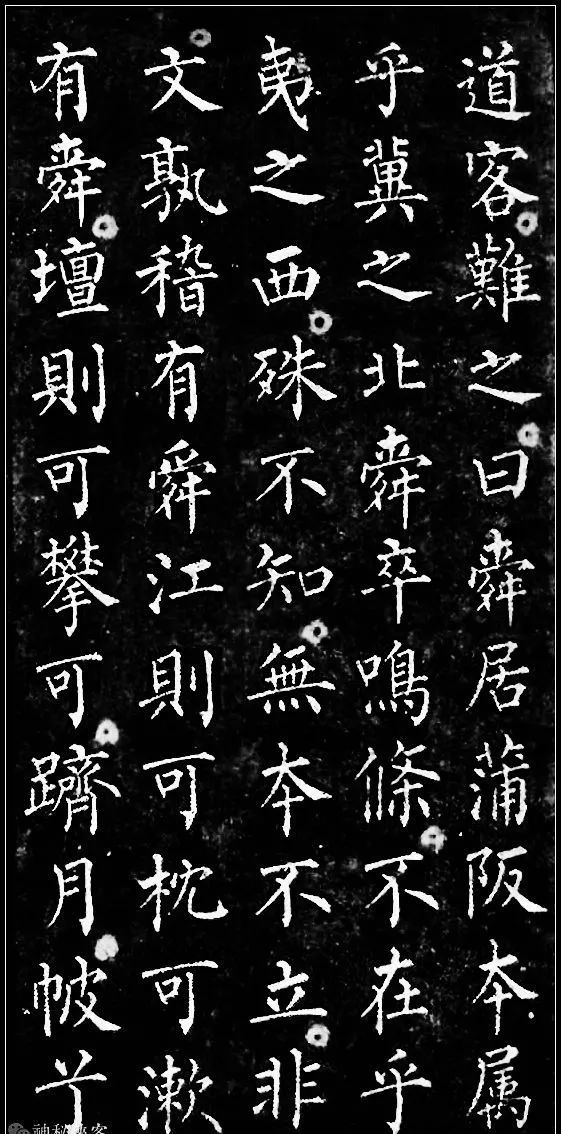 道客難之曰舜居蒲阪本属
乎冀之北舜卒鳴條不在乎
夷之西殊不知無本不立非
文孰稽有舜江則可枕可漱
有舜壇則可攀可躋月帔